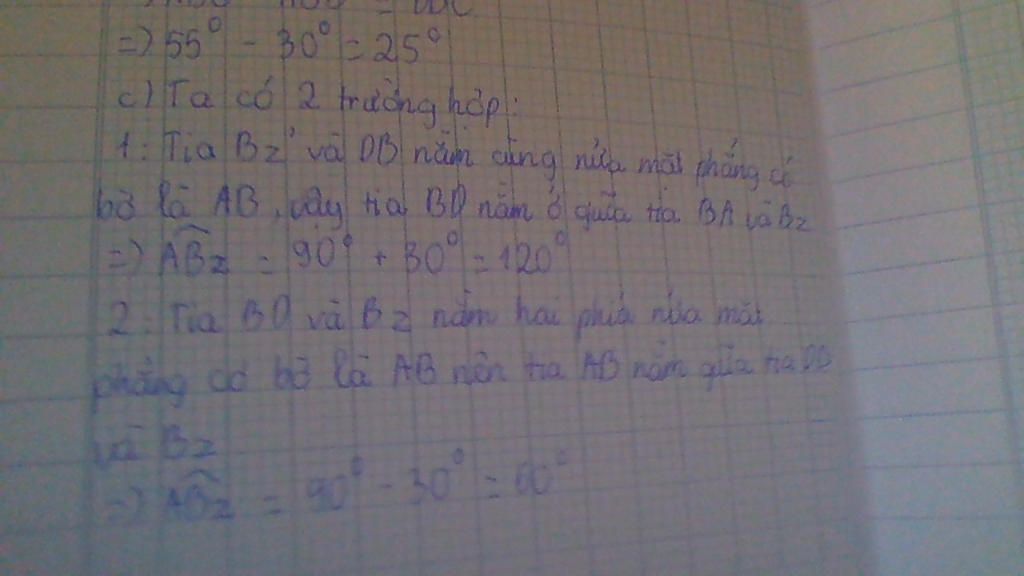 =) 55⁰ - 30⁰ = 25⁰
c) Ta có 2 trường hợp:
1: Tia Bz và DB nằm cùng nửa mặt phẳng có
bờ là AB, vậy tia BD nằm ở giữa tia BA và Bz
=) ABz = 90⁰ + 30⁰ = 120⁰
2: Tia BD và Bz nằm hai phía nửa mặt
phẳng có bờ là AB nên tia AB nằm giữa tia DB
và Bz
=) ABz = 90⁰ - 30⁰ = 60⁰